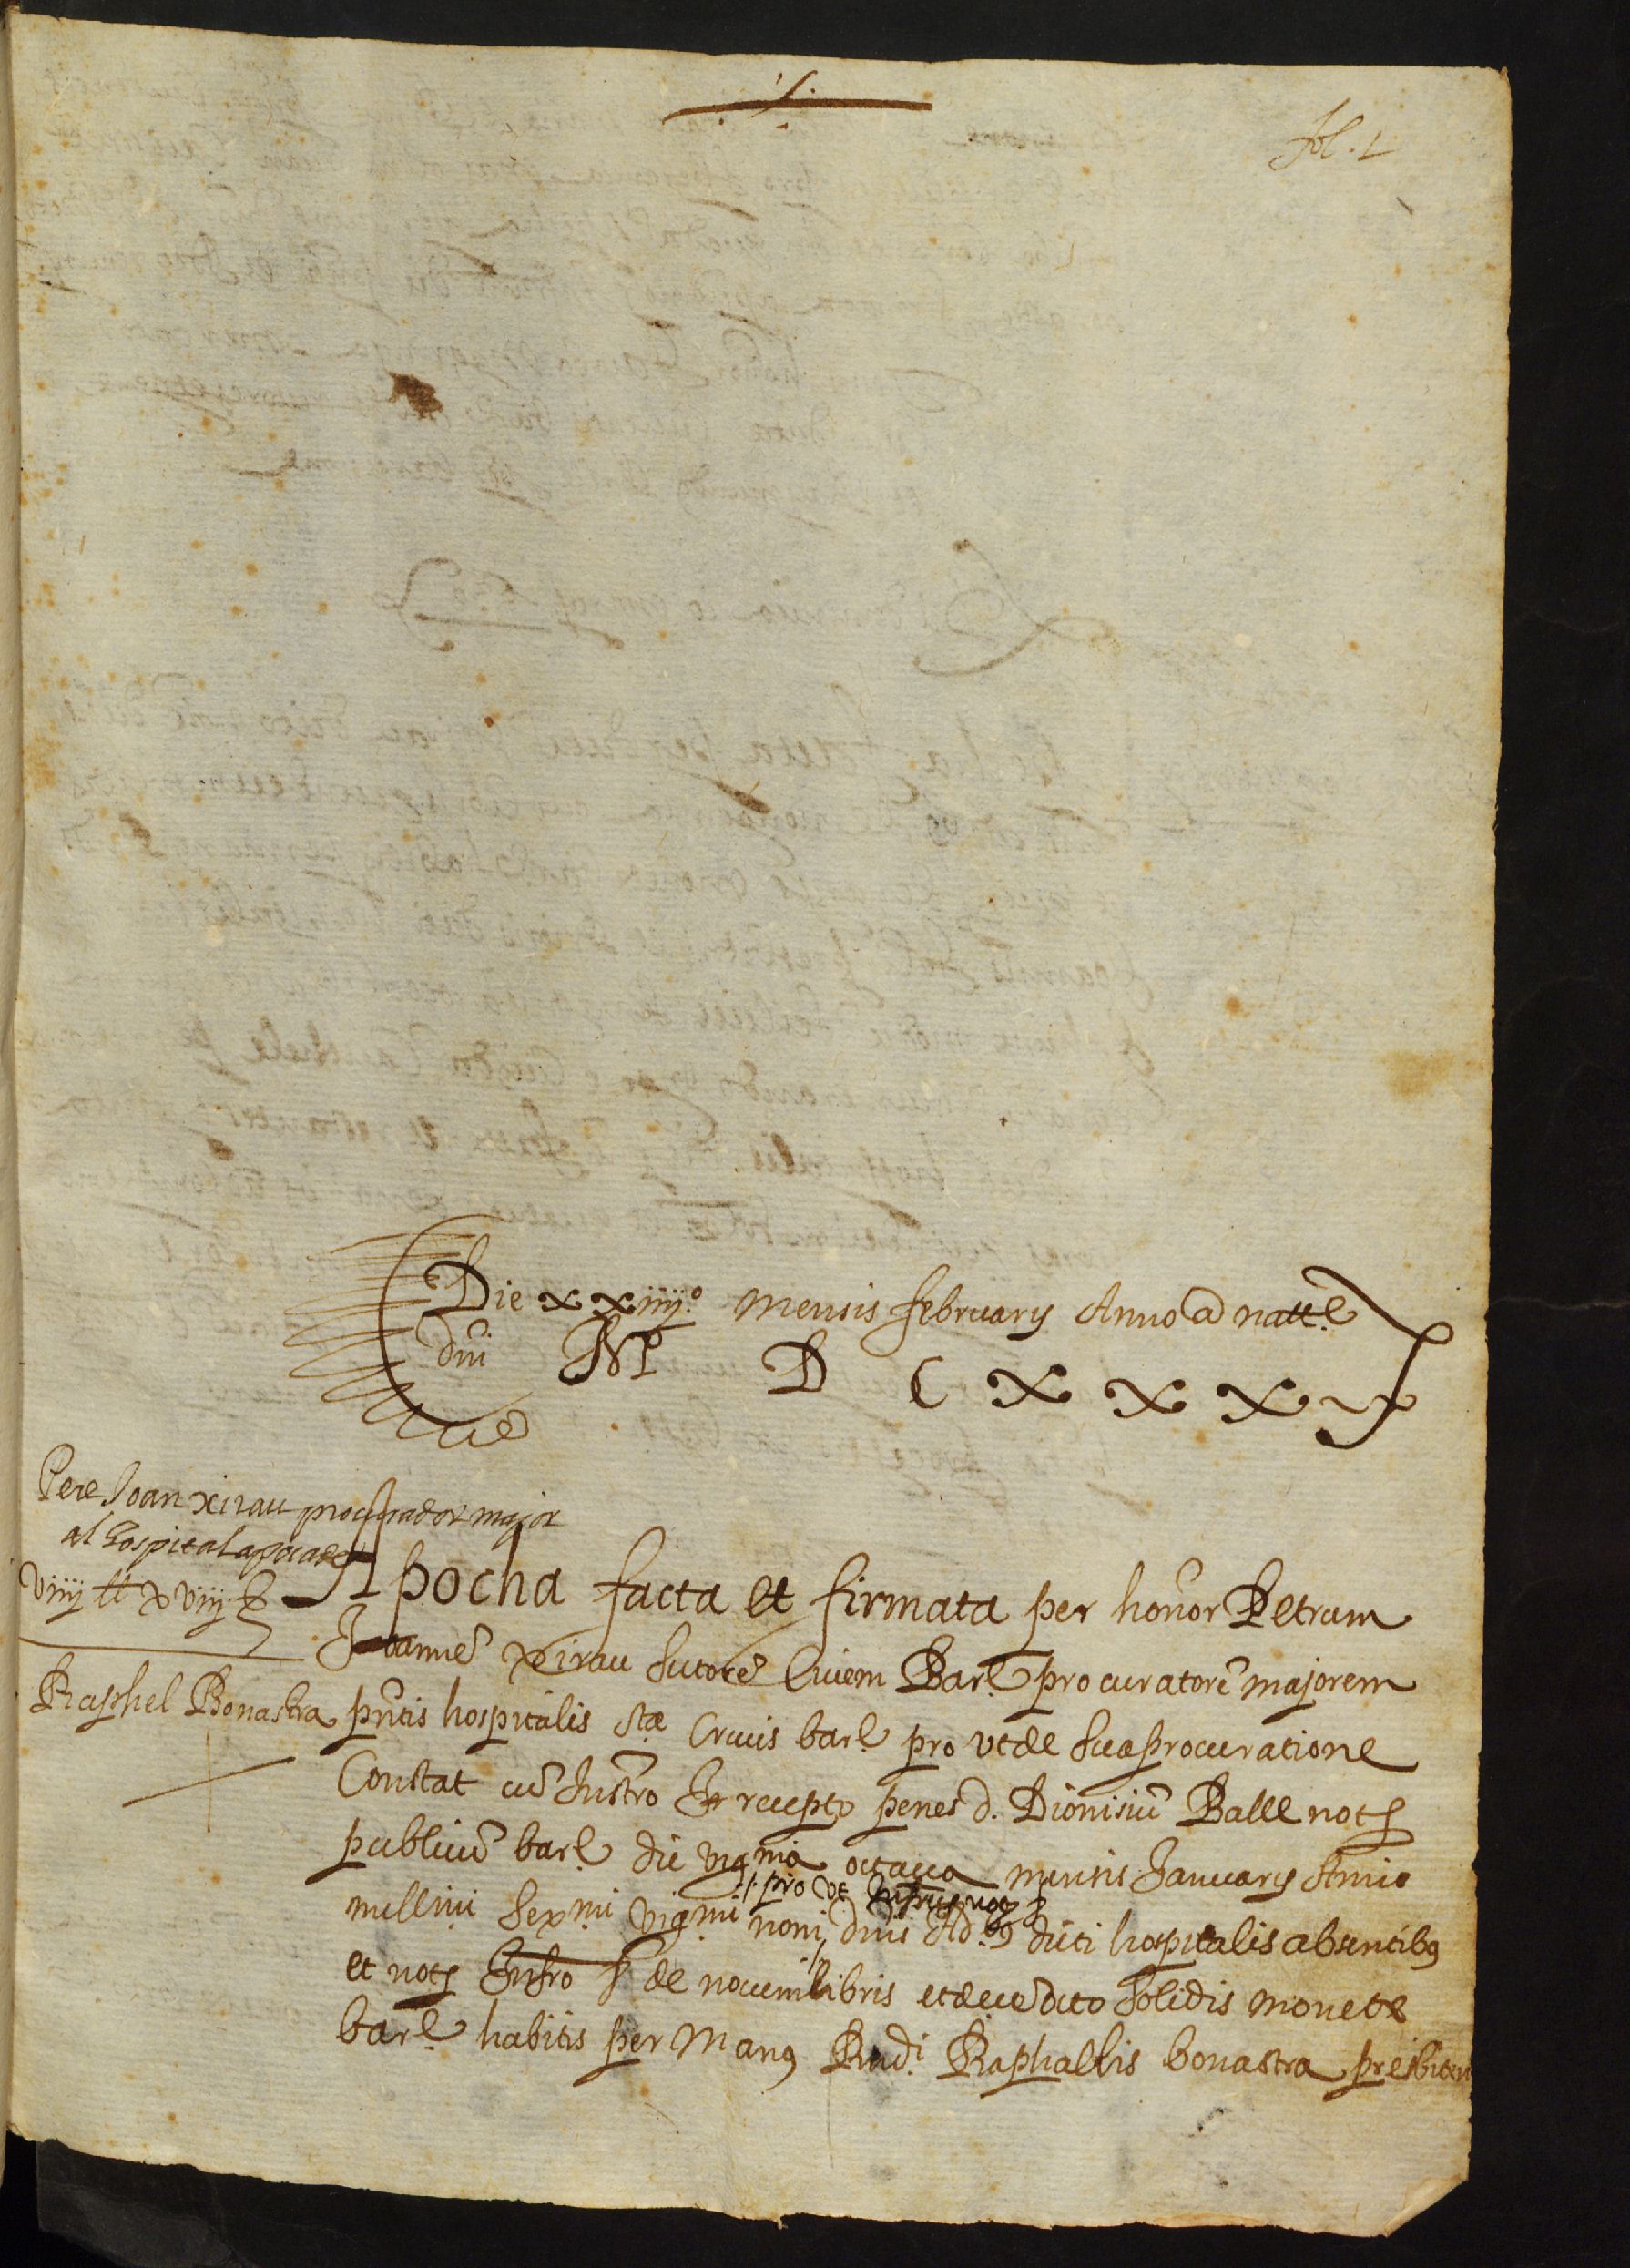 fol. 1
Die xxiiij.º mensis februarij Anno a natte.
dni M D C x x x
Pere Joan xirau procurador major
al hospital apocade
viiij ll xviij s
Apocha facta et firmata per honor Petrum
Joanne xirau sutore Civem Barl. procuratore majorem
Raphel Bonastra
pntis hospitalis stæ Crucis barl. pro ut de sua procuratione
Constat cu Instro In recepto penes d. Dionisiu Balle not
publicu barl. die vigma octava mensis Januarij Anni
./. pro ut
millmi sexmi vigmi noni, dnis Ad. dicti hospitalis absentibus
et not Infro de novem libris et dece octo solidis monete
barl. habitis per manus Rndi. Raphaellis bonastra presbiteri